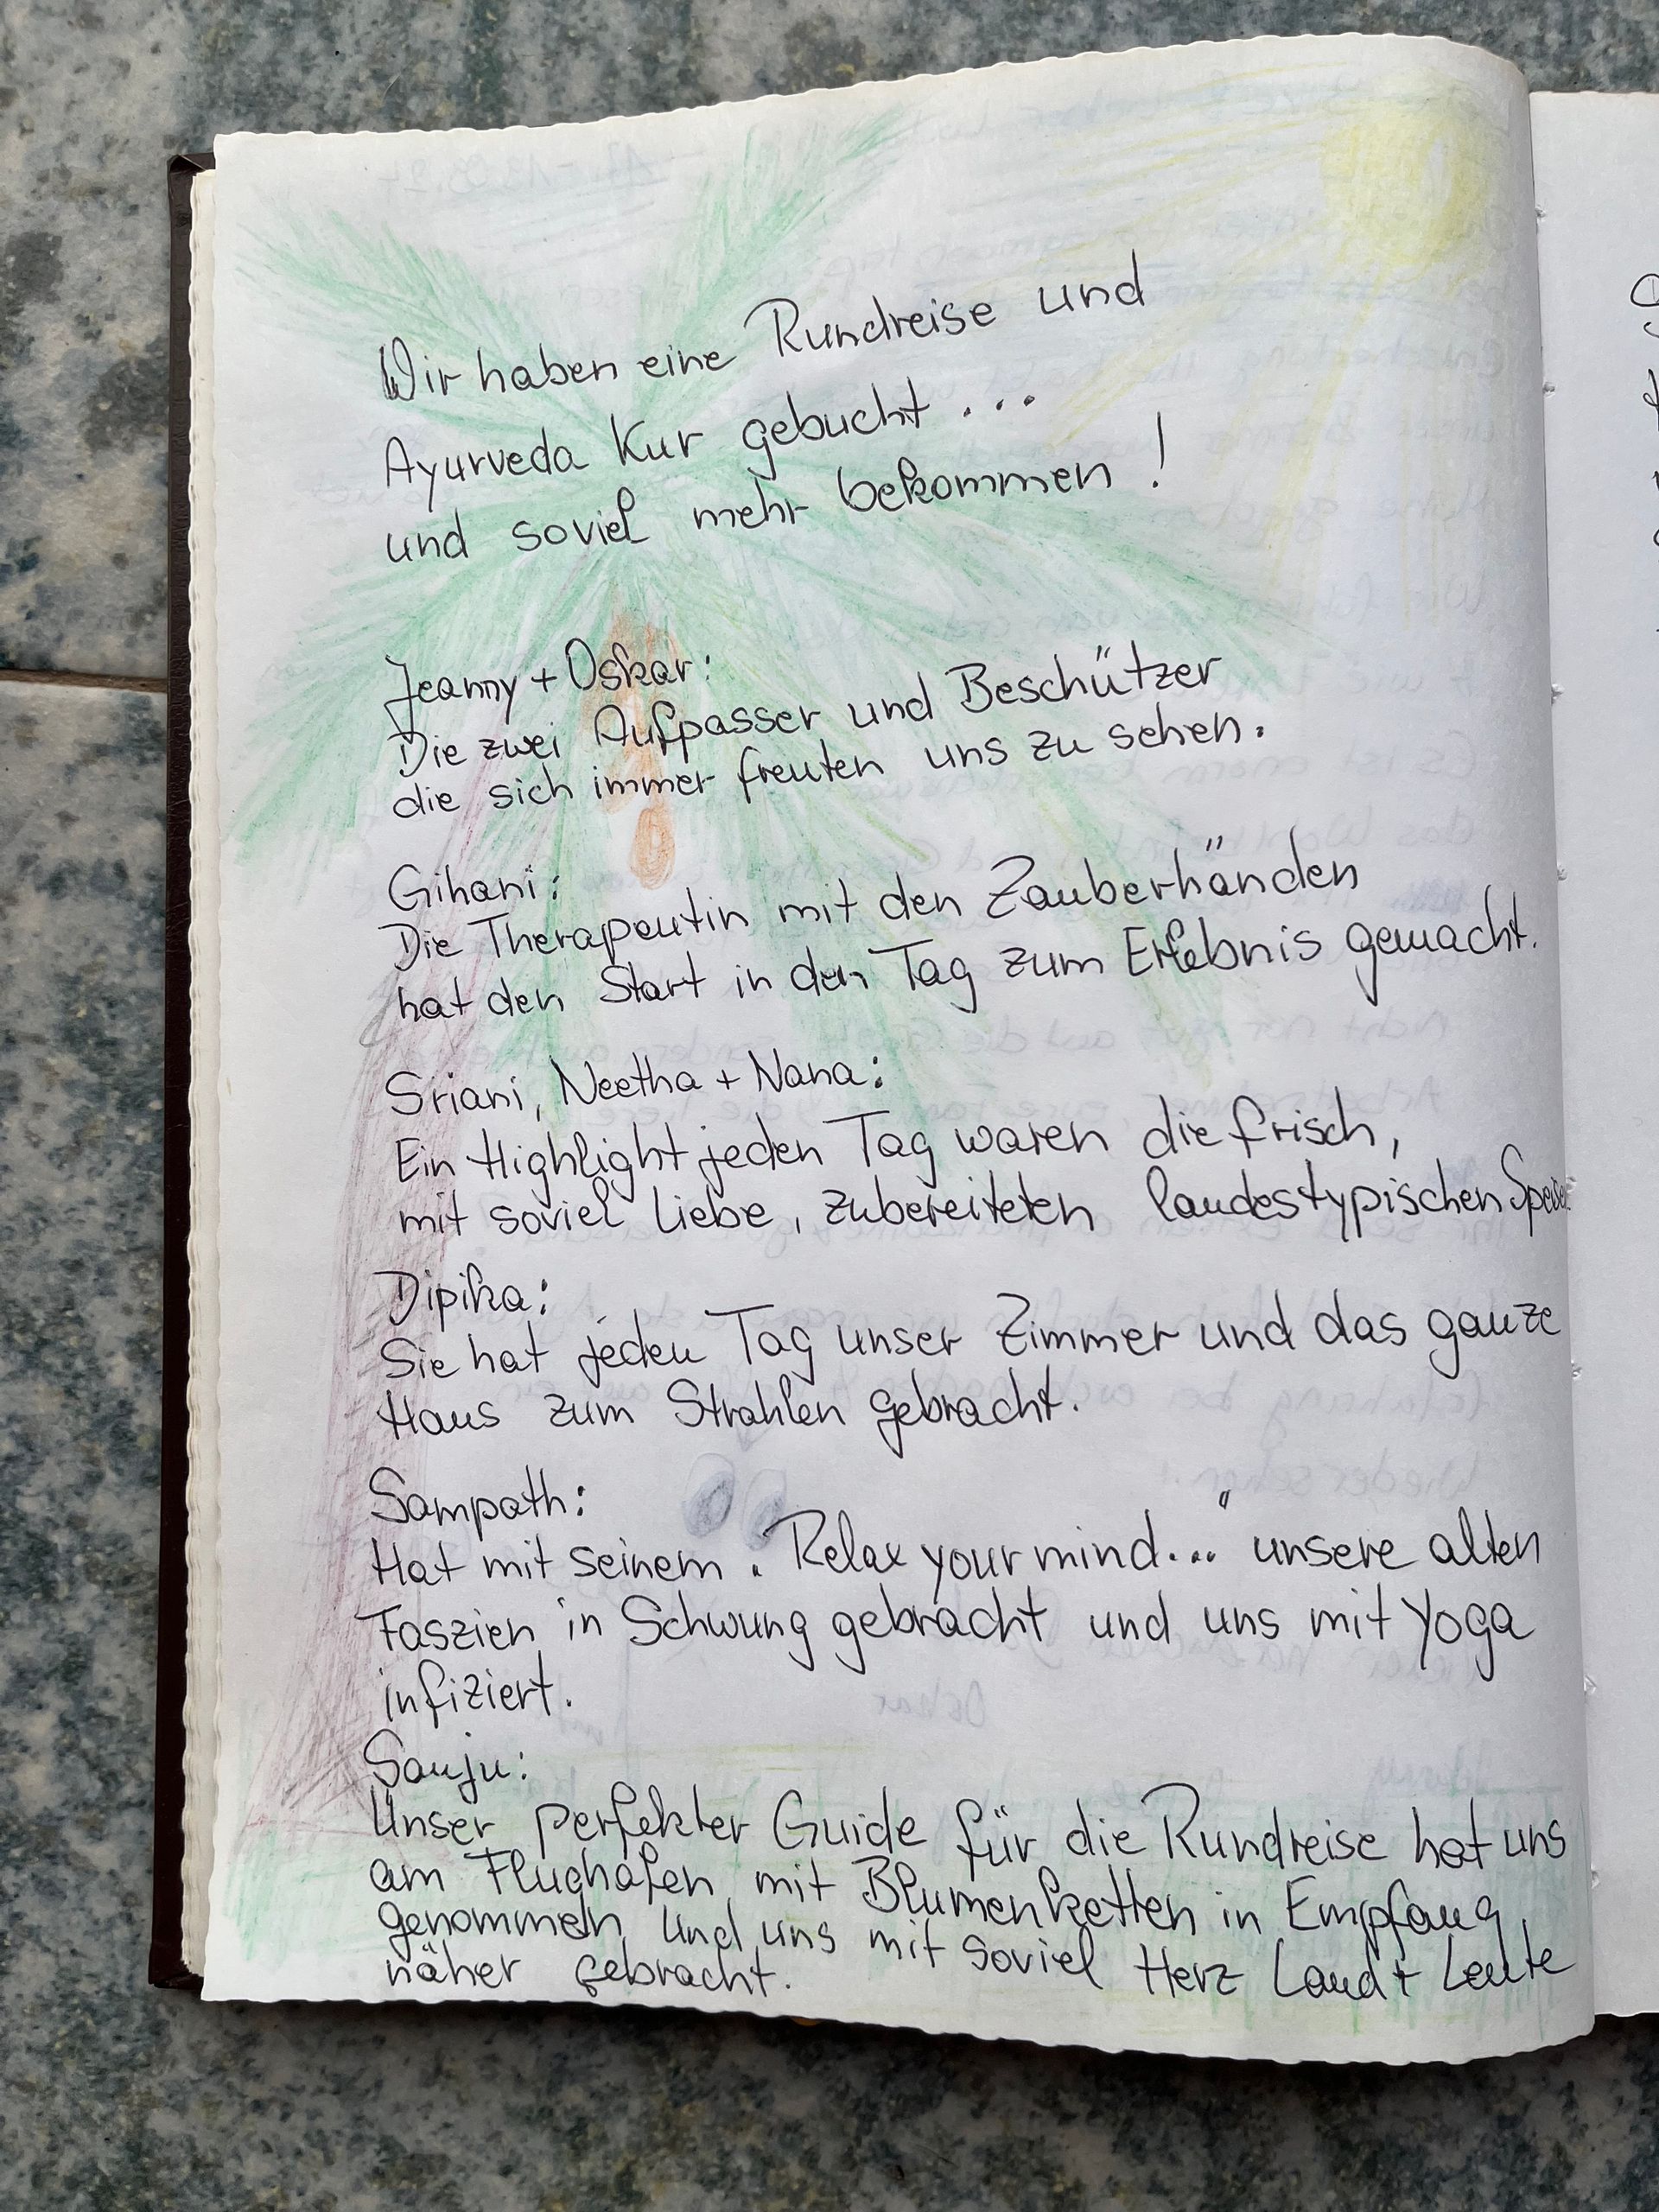 Wir haben eine Rundreise und
Ayurveda Kur gebucht ...
und soviel mehr bekommen !
Jeanny + Oskar:
Die zwei Aufpasser und Beschützer
die sich immer freuten uns zu sehen.
Gihani:
Die Therapeutin mit den Zauberhänden
hat den Start in den Tag zum Erlebnis gemacht.
Sriani, Neetha + Nana:
Ein Highlight jeden Tag waren die frisch,
mit soviel Liebe, zubereiteten landestypischen Speisen
Dipika:
Sie hat jeden Tag unser Zimmer und das ganze
Haus zum Strahlen gebracht.
Sampath:
Hat mit seinem „Relax your mind..." unsere alten
Faszien in Schwung gebracht und uns mit Yoga
infiziert.
Sanju:
Unser perfekter Guide für die Rundreise hat uns
am Flughafen mit Blumenketten in Empfang
genommen und uns mit soviel Herz Land + Leute
näher gebracht.